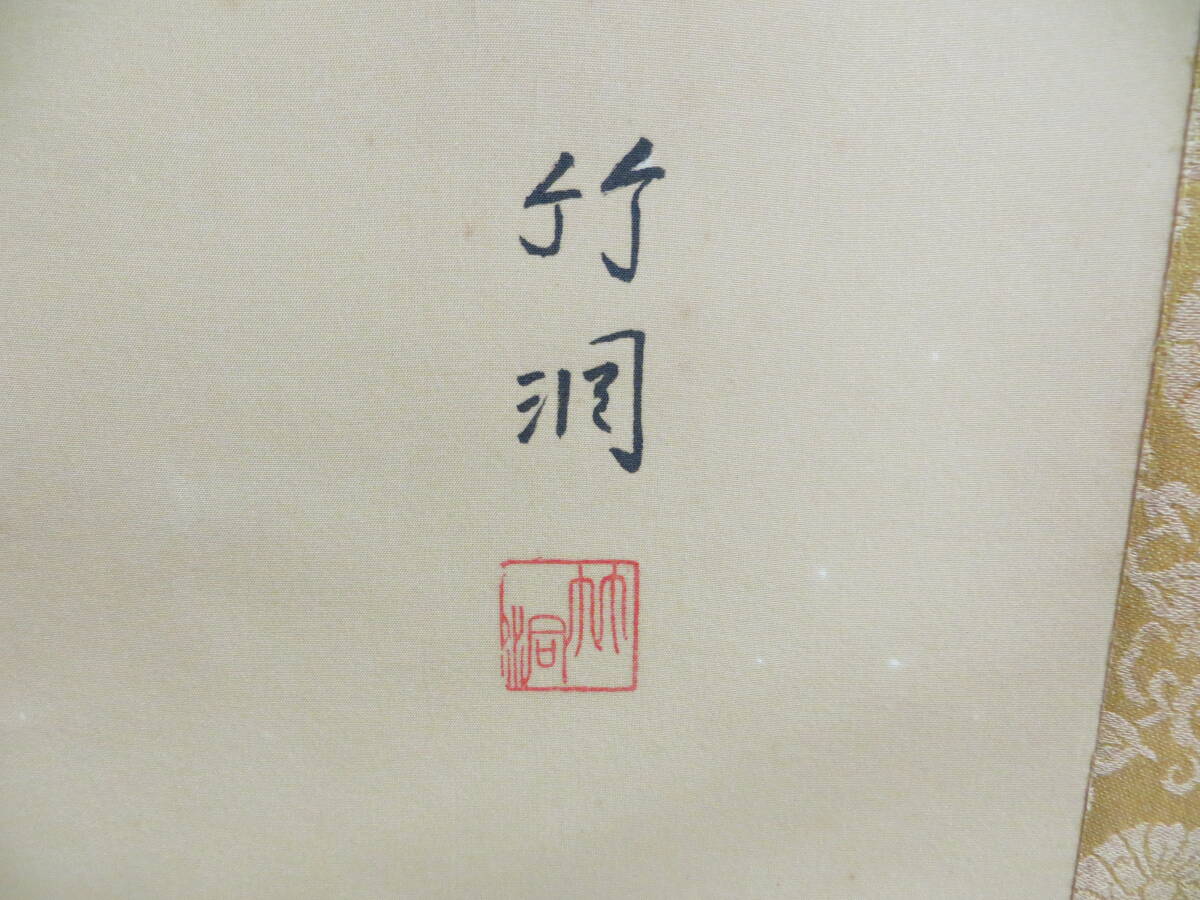 竹洞
竹洞